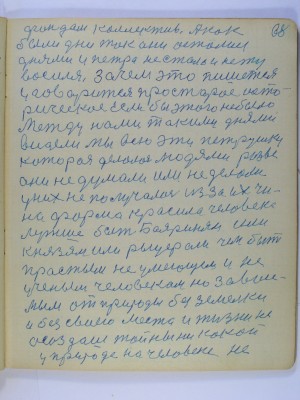 68
фондам коллектив. А как
были дни так они остались
днями и петра не стало и нету
василя, Зачем это пишется
и говорится про старое исто-
рическое если бы этого небыло
Между нами такими днями
видели мы всю эту петрушку
которая делалася людями разве
они не думали или не делали
у них не получалось из за их чи-
на форма красила человека
лутше быть баярином или
князям или рыцерам чем быть
прастым не умеющем и не
ученым человекам но завис-
мым от природы без земельки
и без своего места и жизни не
создаш тайны никакой
у природе на человеке не